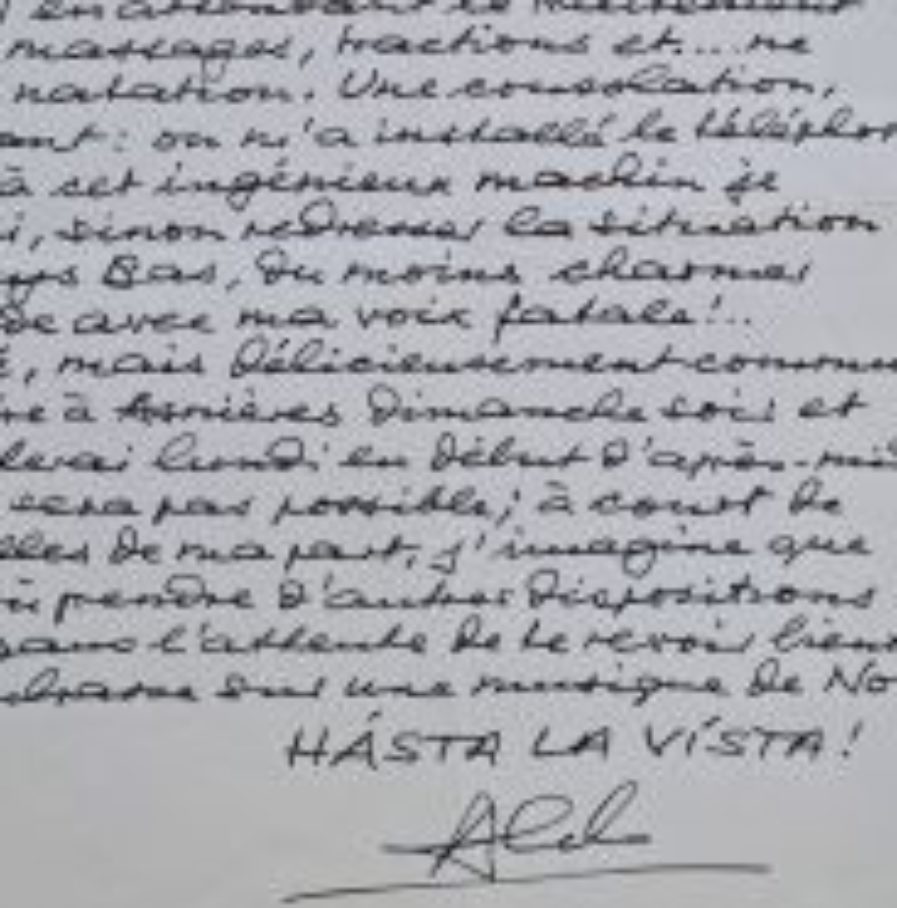 en attendant le
massages, tractions et.... ne
natation. Une consolation,
ant: on m'a installé le télépho
à cet ingénieux machin je
i, sinon redresser la situation
ys Bas, du moins charmer
de avec ma voix fatale!..
é, mais délicieusement commu
re à Asnières Dimanche soir et
lerai lundi en début d'après-mi
sera pas possible; à court de
lles de ma part, j'imagine que
prendre d'autres dispositions
Dans l'attente de te revoir bient
brasse sur une musique de No
HÁSTA LA VÍSTA!
Aldo